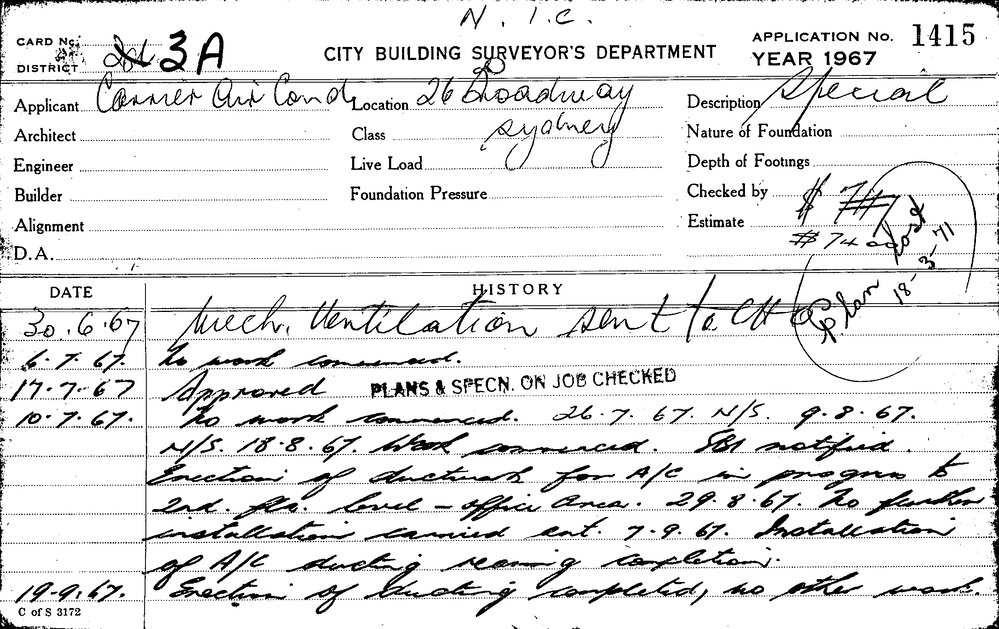 N. I. C.
CARD No. 3A
DISTRICT
CITY BUILDING SURVEYOR'S DEPARTMENT
APPLICATION No. 1415
YEAR 1967
Applicant Carrier Air Cond. Location 26 Broadway Description Special
Architect Class Sydney Nature of Foundation
Engineer Live Load Depth of Footings
Builder Foundation Pressure Checked by
Alignment Estimate $
$ 74 000
D.A.
Plan Post
18-3-71
DATE HISTORY
30.6.67 Mech. Ventilation sent to
6.7.67. No work commenced.
17.7.67 Approved PLANS & SPECN. ON JOB CHECKED
10.7.67. No work commenced. 26.7.67. N/S. 9.8.67.
N/S. 18.8.67. Work commenced. notified.
Erection of ductwork for A/C in progress to
2nd. flr. level - office area. 29.8.67. No further
installation carried out. 7.9.67. Installation
of A/C ducting nearing completion.
19.9.67. Erection of ducting completed, no other work.
C of S 3172